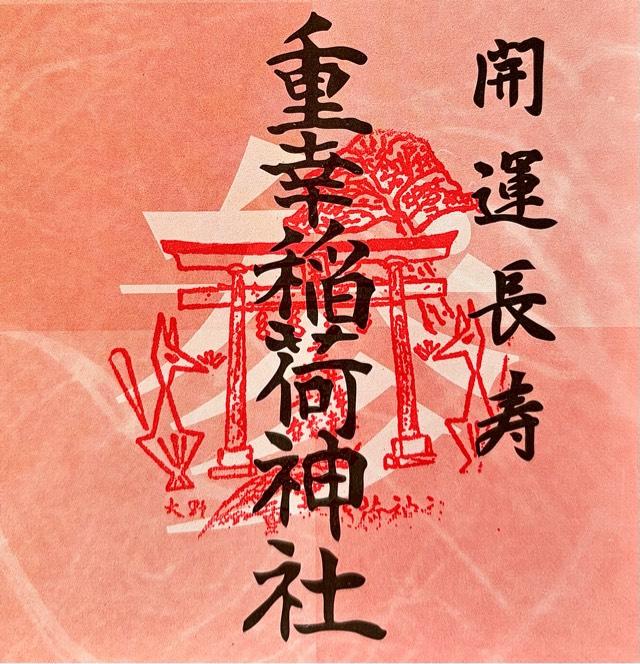 開運長寿
重幸稲荷神社
大野
荷神社